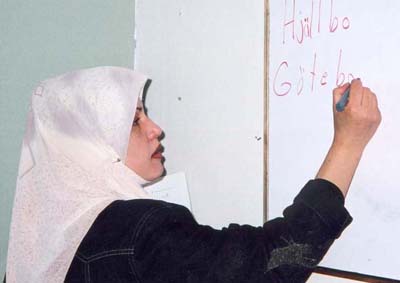 Hjällbo
Götebo